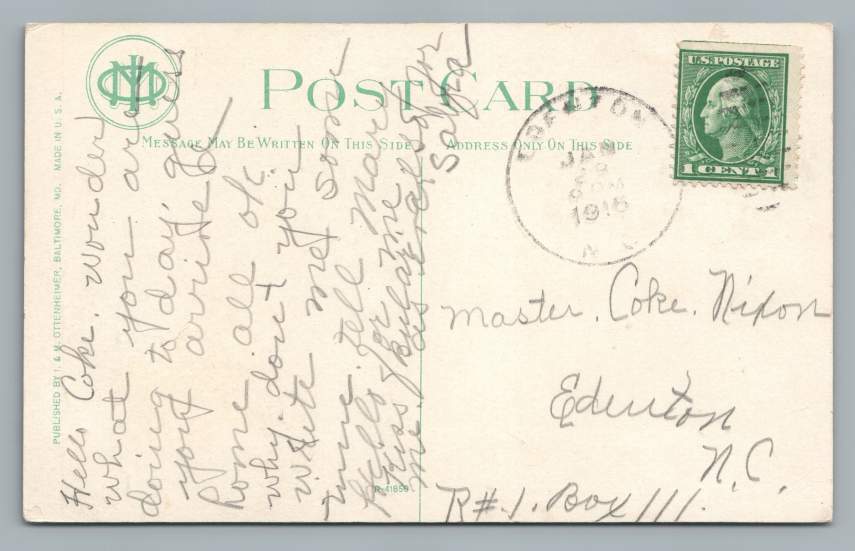 POST CARD
MESSAGE MAY BE WRITTEN ON THIS SIDE
ADDRESS ONLY ON THIS SIDE
U.S. POSTAGE
1 CENT 1
EDENTON
JAN
1916
N.C.
PUBLISHED BY I. & M. OTTENHEIMER, BALTIMORE, MD. MADE IN U.S.A.
Hello Coke. wonder
what you are
doing to day, guess
you arrived
home all ok.
why don't you
write me some
time. tell Mary
Hello for me
Kiss Eula
me.
also for
Master. Coke. Nixon
Edenton
N.C.
R#.1. Box 111.
R-41850